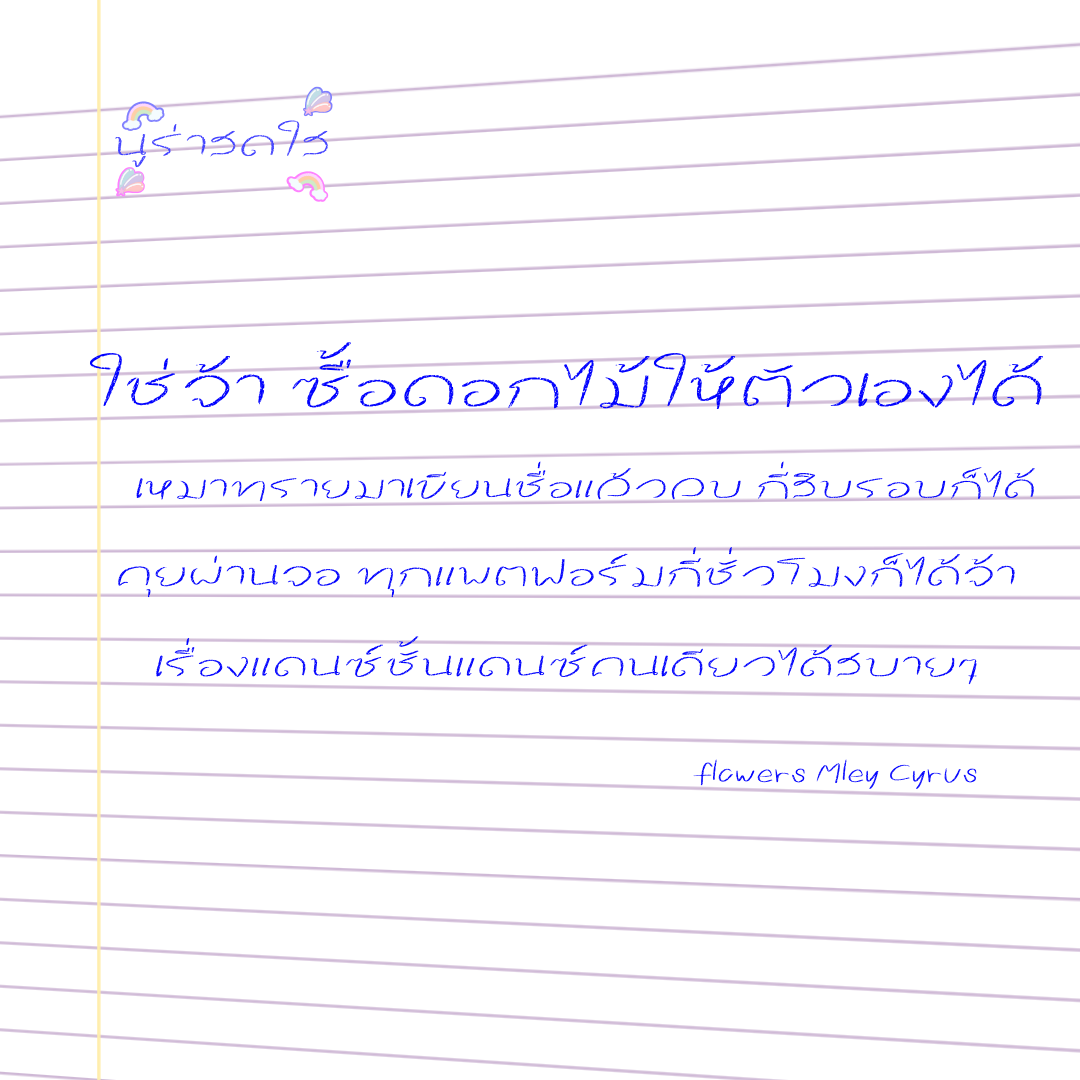 นู๋ร่าสดใส
ใช่จ้า ซื้อดอกไม้ให้ตัวเองได้
เหมาทรายมาเขียนชื่อแล้วลบ กี่สิบรอบก็ได้
คุยผ่านจอ ทุกแพตฟอร์มกี่ชั่วโมงก็ได้จ้า
เรื่องแดนซ์ชั้นแดนซ์คนเดียวได้สบายๆ
flowers Mley Cyrus